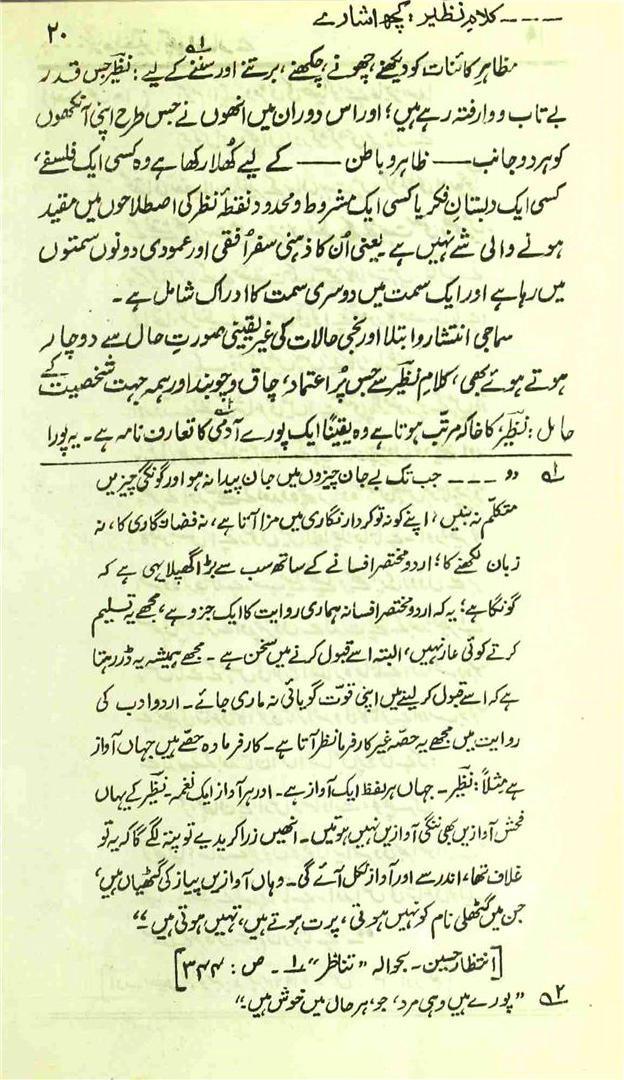 ۔۔۔۔ کلامِ نظیر : کچھ اشارے
۲۰
مظاہرِ کائنات کو دیکھنے، چھونے، چکھنے، برتنے اور سننے کے لیے ؛ نظیرؔ جس قدر
بے تاب و وارفتہ رہے ہیں ؛ اور اس دوران میں انھوں نے جس طرح اپنی آنکھوں
کو ہر دو جانب —— ظاہر و باطن —— کے لیے کُھلا رکھا ہے وہ کسی ایک فلسفے،
کسی ایک دبستانِ فکر یا کسی ایک مشروط و محدود نقطۂ نظر کی اصطلاحوں میں مقید
ہونے والی شے نہیں ہے ۔ یعنی اُن کا ذہنی سفر اُفقی اور عمودی دونوں سمتوں
میں رہا ہے اور ایک سمت میں دوسری سمت کا ادراک شامل ہے ۔
سماجی انتشار و ابتلا اور نجی حالات کی غیر یقینی صورتِ حال سے دوچار
ہوتے ہوئے بھی، کلامِ نظیرؔ سے جس پُر اعتماد، چاق و چوبند اور ہمہ جہت شخصیت کے
حامل : نظیرؔ، کا خاکہ مرتّب ہوتا ہے وہ یقیناً ایک پورے آدمی ۲؎ کا تعارف نامہ ہے ۔ یہ پورا
۱؎ دو ۔۔۔۔ جب تک بے جان چیزوں میں جان پیدا نہ ہو اور گونگی چیزیں
متکلّم نہ بنیں، اپنے کو نہ تو کردار نگاری میں مزا آتا ہے، نہ فضا نگاری کا، نہ
زبان لکھنے کا ؛ اردو مختصر افسانے کے ساتھ سب سے بڑا گھپلا یہی ہے کہ
گونگا ہے ؛ یہ کہ اردو مختصر افسانہ ہماری روایت کا ایک جزو ہے، مجھے یہ تسلیم
کرتے کوئی عار نہیں، البتہ اسے قبول کرنے میں سخن ہے ۔ مجھے ہمیشہ یہ ڈر رہتا
ہے کہ اسے قبول کر لینے میں اپنی قوّت گویائی نہ ماری جائے ۔ اردو ادب کی
روایت میں مجھے یہ حصّہ غیر کارفرما نظر آتا ہے ۔ کارفرما وہ حصّے ہیں جہاں آواز
ہے مثلاً : نظیرؔ ۔ جہاں ہر لفظ ایک آواز ہے ۔ اور ہر آواز ایک نغمہ ۔ نظیرؔ کے یہاں
فحش آوازیں بھی ننگی آوازیں نہیں ہوتیں ۔ انھیں ذرا کریدیے تو پتہ لگے گا کہ یہ تو
غلاف تھا، اندر سے اور آواز نکل آئے گی ۔ وہاں آوازیں پیاز کی گٹھیاں ہیں،
جن میں گٹھلی نام کو نہیں ہوتی، پرت ہوتے ہیں، تہیں ہوتی ہیں ۔“
[انتظار حسین ۔ بحوالہ ”تناظر“ ۱ ۔ ص : ۳۴۴]
۲؎ ”پورے ہیں وہی مرد، جو، ہر حال میں خوش ہیں ۔“